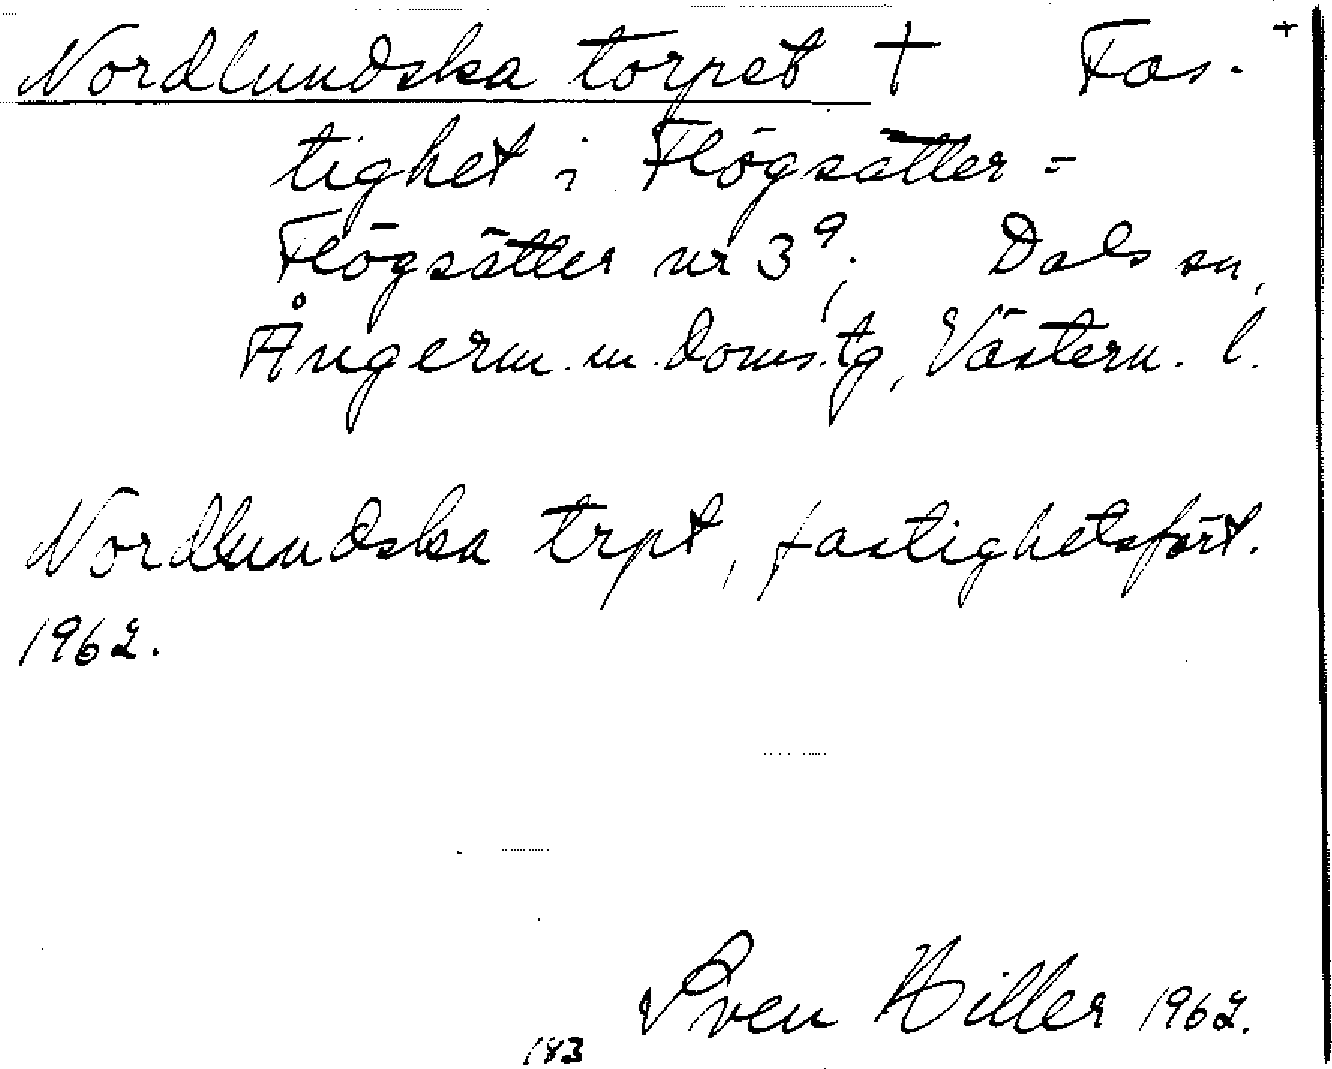 Nordlundska torpet + Fas- +
tighet i Flögsätter =
Flögsätter nr 3⁹; Dals sn,
Ångerm. m. doms.tg, Västern. l.
Nordlundska trpt, fastighetsfört.
1962.
Sven Hiller 1962.
183